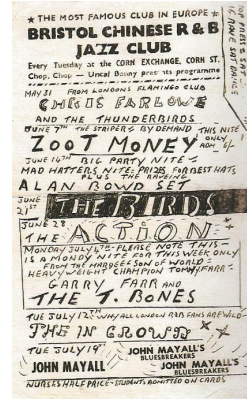 ★ THE MOST FAMOUS CLUB IN EUROPE ★
BRISTOL CHINESE R & B
JAZZ CLUB
Every Tuesday at the CORN EXCHANGE, CORN ST.
Chop, Chop — Uncal Bonny presents programme
MAY 31 FROM LONDONS FLAMINGO CLUB
CHRIS FARLOWE
AND THE THUNDERBIRDS
JUNE 7TH THE STRIPERS BY DEMAND THIS NITE
ZOOT MONEY ONLY
ADM. 6/-
JUNE 14TH BIG PARTY NITE -
MAD HATTERS NITE: PRIZES FOR BEST HATS
PLUS THE RAVEING
ALAN BOWD SET
JUNE 21ST THE BIRDS
JUNE 28
THE ACTION
MONDAY JULY 4TH - PLEASE NOTE THIS -
IS A MONDY NITE FOR THIS WEEK ONLY
FROM THE MARQEE SON OF WORLD -
HEAVYWEIGHT CHAMPION TOMMY FARR -
GARRY FARR AND
THE T. BONES
TUE JULY 12TH WHY ALL LONDON R&B FANS ARE WILD
THE IN CROWD
TUE JULY 19TH JOHN MAYALL'S
BLUESBREAKERS
JOHN MAYALL JOHN MAYALL'S
BLUESBREAKERS
NURSES HALF PRICE - STUDENTS ADMITTED ON CARDS